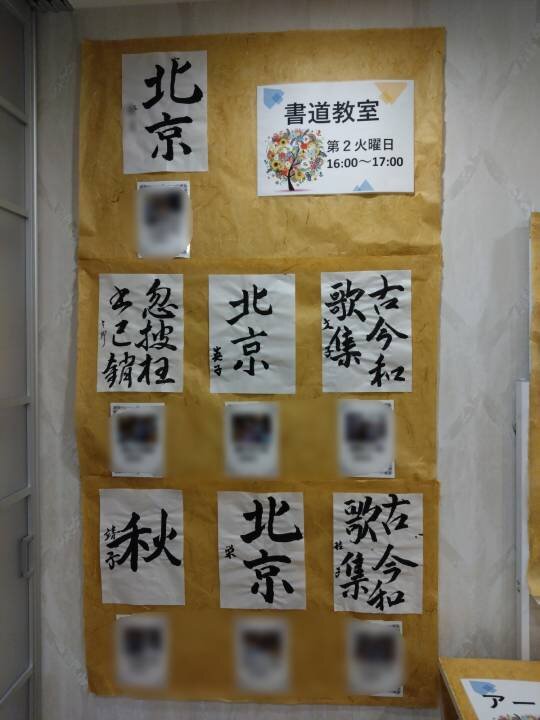 書道教室
第2火曜日
16:00～17:00
北京
古今和
歌集
文子
北京
英子
忽披枉
士己銷
古今和
歌集
桂子
北京
栄
秋
靖子
アー